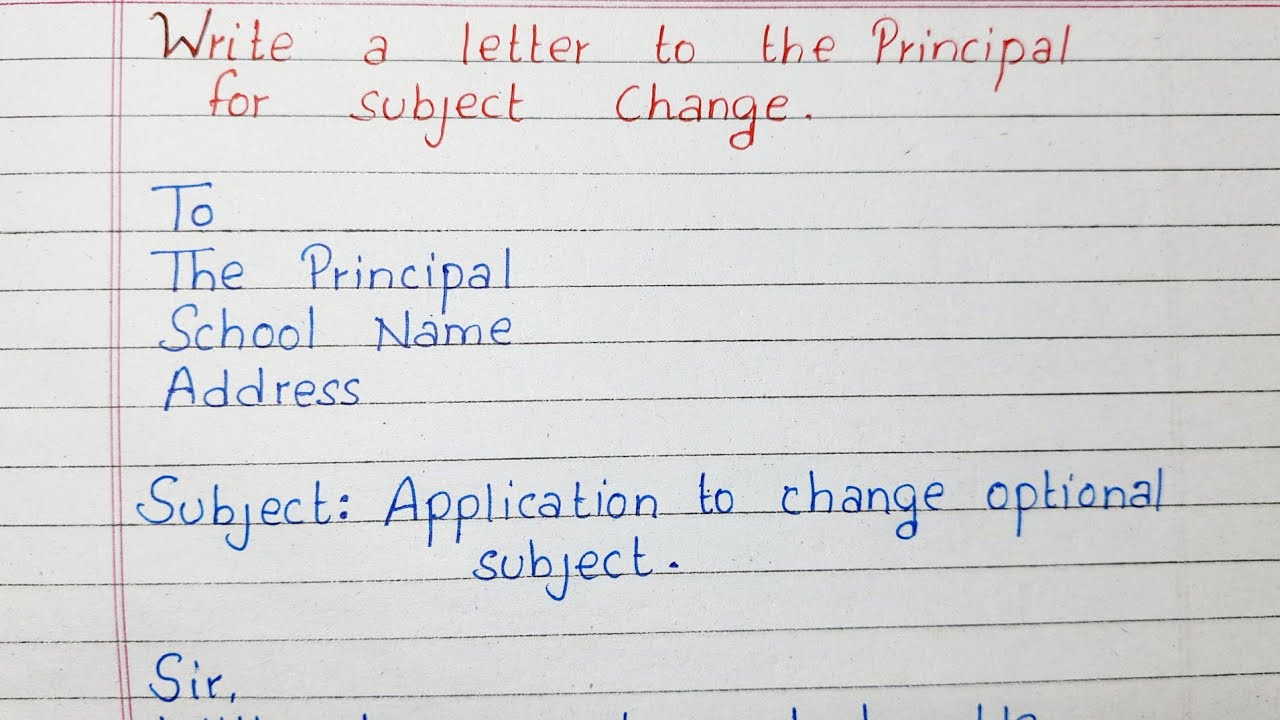 Write a letter to the Principal
for subject Change.
To
The Principal
School Name
Address
Subject: Application to change optional
subject.
Sir,